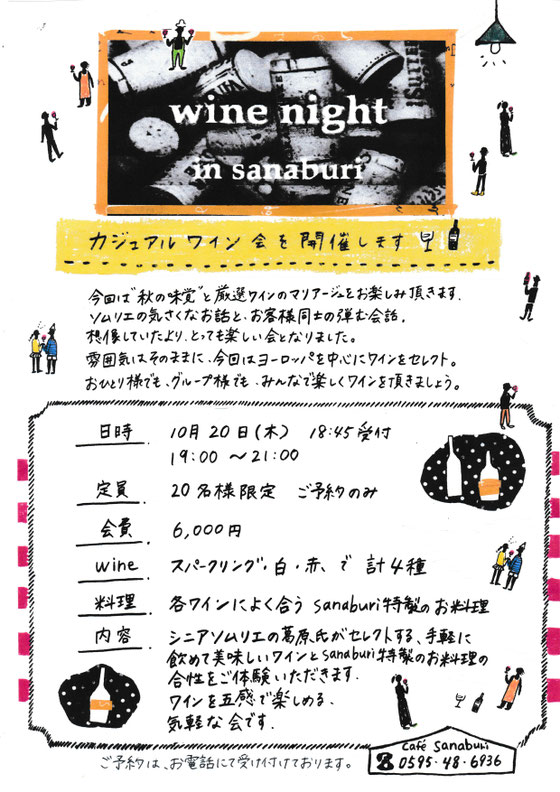 wine night
in sanaburi
カジュアルワイン会を開催します
今回は"秋の味覚"と厳選ワインのマリアージュをお楽しみ頂きます.
ソムリエの気さくなお話と、お客様同士の弾む会話。
想像していたより、とっても楽しい会となりました。
雰囲気はそのままに、今回はヨーロッパを中心にワインをセレクト。
おひとり様でも、グループ様でも、みんなで楽しくワインを頂きましょう。
日時 10月20日(木) 18:45受付
19:00 〜21:00
定員 20名様限定 ご予約のみ
会費 6,000円
wine スパークリング・白・赤、で 計4種
料理 各ワインによく合う sanaburi特製のお料理
内容 シニアソムリエの葛原氏がセレクトする、手軽に
飲めて美味しいワインとsanaburi特製のお料理の
合性をご体験いただきます.
ワインを五感で楽しめる、
気軽な会です.
café sanaburi
0595・48・6936
ご予約は、お電話にて受け付けております。